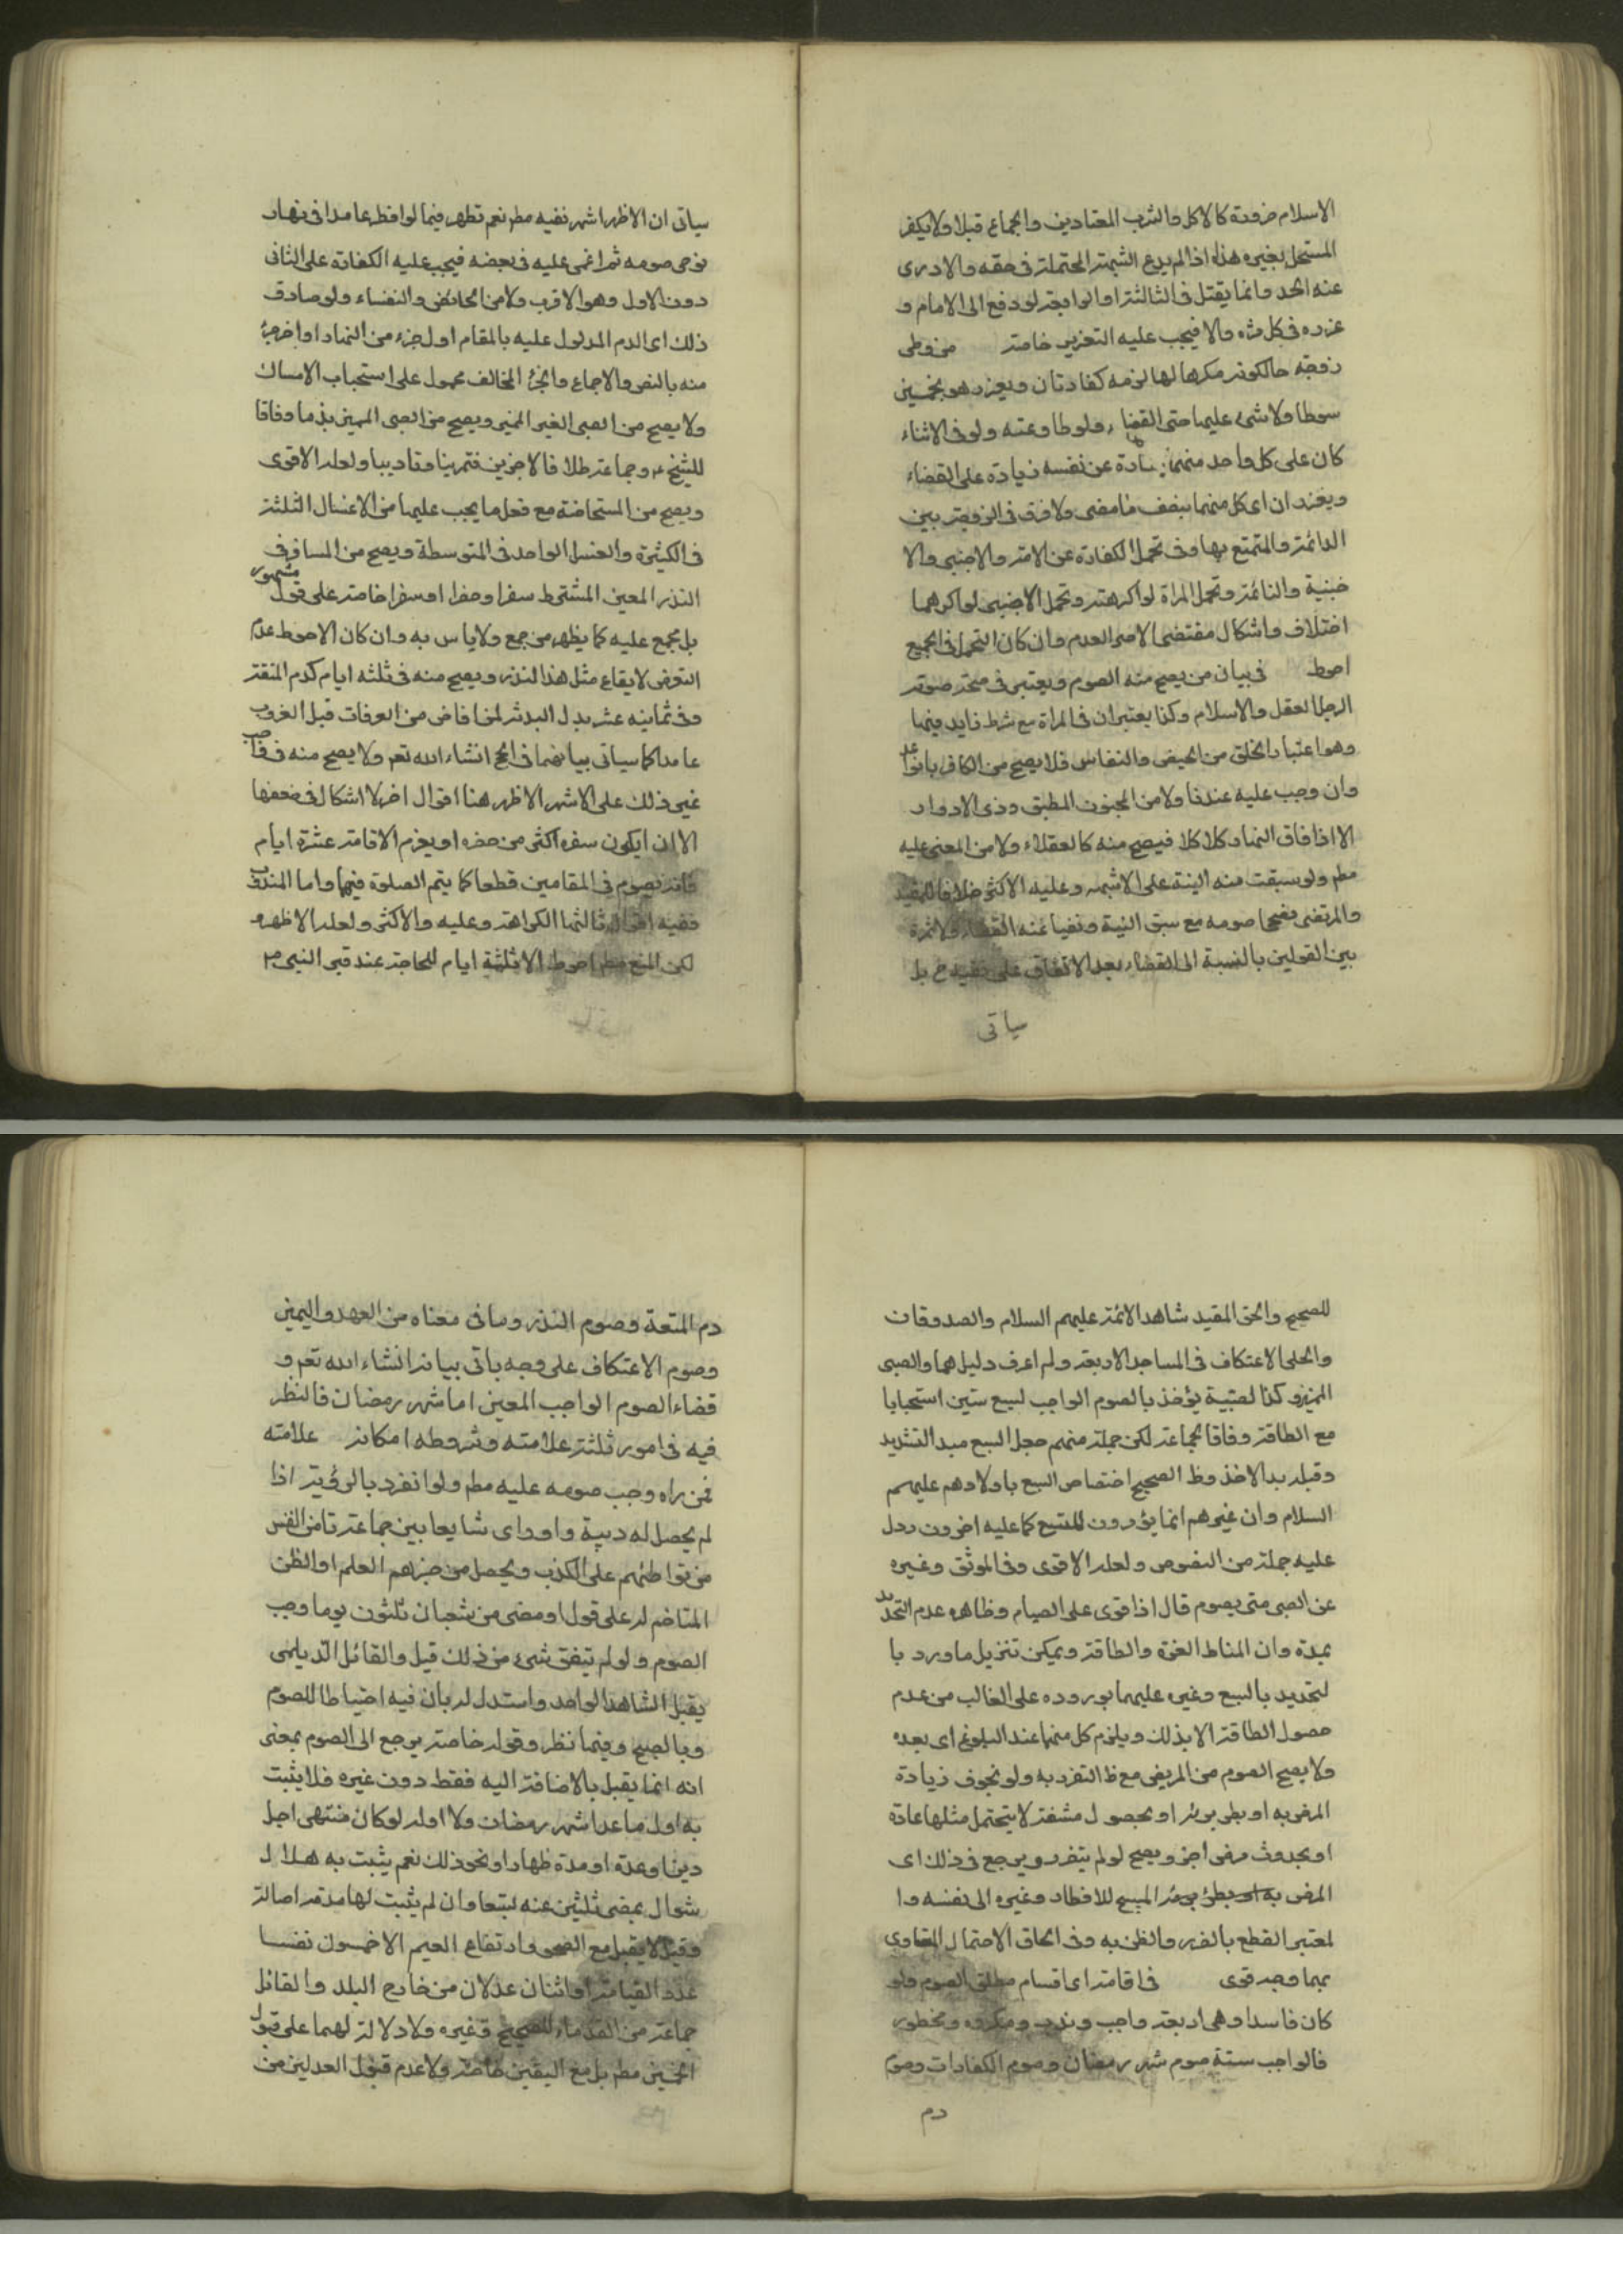 الاسلام ضرورة كالاكل والشرب المعتادين والجماع قبلا ولا يكفر
المستحل بغيره هذا اذا لم يدع الشبهة المحتملة في حقه والا درئ
عنه الحد وانما يقتل في الثالثة او الرابعة لو دفع الى الامام و
عزره في كل مرة والا فيجب عليه التعزير خاصة من وطى
زوجته حالكونه مكرها لها لزمه كفارتان ويعزر هو بخمسين
سوطا ولا شئ عليها حتى القضاء ولو طاوعته ولو في الاثناء
كان على كل واحد منهما كفارة عن نفسه زيادة على القضاء
ويعزران اى كل منهما بنصف ما مضى ولا فرق في الزوجة بين
الدائمة والمتمتع بها وفي تحمل الكفارة عن الامة والاجنبى والا
جنبية والنائمة وتحمل المراة لو اكرهته وتحمل الاجنبى لو اكرههما
اختلاف واشكال مقتضى الاصل العدم وان كان التحمل في الجميع
احوط في بيان من يصح منه الصوم ويعتبر في صحة صوم
الرجل العقل والاسلام وكذا يعتبران في المراة مع شرط زايد فيها
وهو اعتبار الخلو من الحيض والنفاس فلا يصح من الكافر بانواعه
وان وجب عليه عندنا ولا من المجنون المطبق وذى الادوار
الا اذا فاق النهار كلا كلا فيصح منه كالعقلاء ولا من المغمى عليه
مطم ولو سبقت منه النية على الاشهر وعليه الاكثر خلافا للمفيد
والمرتضى فصححا صومه مع سبق النية ونفيا عنه القضاء ولا ثمرة
بين القولين بالنسبة الى القضاء بعد الاتفاق على نفيه ح بل
سياتى
سياتى ان الاظهر اشهر نفيه مطم نعم تظهر فيما لو افطر عامدا في نهار
نوى صومه ثم اغمى عليه في بعضه فيجب عليه الكفارة على الثانى
دون الاول وهو الاقرب ولا من الحائض والنفساء ولو صادف
ذلك اى الدم المدلول عليه بالمقام اول جزء من النهار او اخر جزء
منه بالنص والاجماع والخبر المخالف محمول على استحباب الامساك
ولا يصح من الصبى الغير المميز ويصح من الصبى المميز وفاقا
للشيخ وجماعة خلافا لاخرين فتمرينا وتاديبا ولعله الاقوى
ويصح من المستحاضة مع فعل ما يجب عليها من الاغسال الثلثة
في الكثيرة والغسل الواحد في المتوسطة ويصح من المسافر في
النذر المعين المشترط سفرا وحضرا او سفرا خاصة على قول مشهور
بل مجمع عليه كما يظهر من جمع ولا باس به وان كان الاحوط عدم
التعرض لايقاع مثل هذا النذر ويصح منه في ثلثه ايام كدم المتعة
وفي ثمانيه عشر بدل البدنة لمن افاض من العرفات قبل الغروب
عامدا كما سياتى بيانهما في الحج انشاء الله تعم ولا يصح منه في واجب
غير ذلك على الاشهر الاظهر هنا اقوال اخر لا اشكال في ضعفها
الا ان يكون سفره اكثر من حضره او يعزم الاقامة عشرة ايام
فانه يصوم في المقامين قطعا كما يتم الصلوة فيها واما المندوب
ففيه اقوال ثالثها الكراهة وعليه والاكثر ولعله الاظهر و
لكن المنع مطم احوط الا ثلثة ايام للحاجة عند قبر النبى ص
للصحيح والحق المفيد شاهد الائمة عليهم السلام والصدوقان
والحلى الاعتكاف في المساجد الاربعة ولم اعرف دليلهما والصبى
المميز وكذا الصبية يؤخذ بالصوم الواجب لسبع سنين استحبابا
مع الطاقة وفاقا لجماعة لكن جملة منهم جعل السبع مبدا التشديد
وقبله بدا الاخذ وظ الصحيح اختصاص السبع باولادهم عليهم
السلام وان غيرهم انما يؤمرون للتسع كما عليه اخرون ودل
عليه جملة من النصوص ولعله الاقوى وفي الموثق وغيره
عن الصبى متى يصوم قال اذا قوى على الصيام وظاهره عدم التحديد
بمدة وان المناط القوة والطاقة ويمكن تنزيل ما ورد با
لتحديد بالسبع وغيره عليهما بوروده على الغالب من عدم
حصول الطاقة الا بذلك ويلزم كل منهما عند البلوغ اى بعده
ولا يصح الصوم من المريض مع ظ التضرر به ولو بخوف زيادة
المرض به او بطئ برئه او بحصول مشقة لا يتحمل مثلها عادة
او بحدوث مرض اخر ويصح لو لم يتضرر ويرجع في ذلك اى
المرض به او بطئ برئه المبيح للافطار وغيره الى نفسه وا
لمعتبر القطع بالضرر والظن به وفي الحاق الاحتمال المتساوى
بهما وجه قوى في اقامة اى اقسام مطلق الصوم ولو
كان فاسدا وهى اربعة واجب وندب ومكروه ومحظور
فالواجب ستة صوم شهر رمضان وصوم الكفارات وصوم
دم
دم المتعة وصوم النذر وما في معناه من العهد واليمين
وصوم الاعتكاف على وجه ياتى بيانه انشاء الله تعم و
قضاء الصوم الواجب المعين اما شهر رمضان فالنظر
فيه في امور ثلثة علامته وشروطه احكامه علامته
فمن راه وجب صومه عليه مطم ولو انفرد بالرؤية اذا
لم يحصل له ريبة او راى شايعا بين جماعة تامن النفس
من تواطئهم على الكذب ويحصل من خبرهم العلم او الظن
المتاخم له على قول او مضى من شعبان ثلثون يوما وجب
الصوم ولو لم يتفق شئ من ذلك قيل والقائل الديلمى
يقبل الشاهد الواحد واستدل له بان فيه احتياطا للصوم
وبالصحيح وفيهما نظر وقوله خاصة يرجع الى الصوم بمعنى
انه انما يقبل بالاضافة اليه فقط دون غيره فلا يثبت
به اول ما عدا شهر رمضان ولا اوله لو كان منتهى اجل
دين او عدة او مدة ظهار او نحو ذلك نعم يثبت به هلال
شوال بمضى ثلثين عنه تبعا وان لم يثبت لها مدة اصالة
وقيل لا يقبل مع الصحو وارتفاع الغيم الا خمسون نفسا
عدد القسامة او اثنان عدلان من خارج البلد والقائل
جماعة من القدماء للصحيح وغيره ولا دلالة لهما على قبول
الخمسين مطم بل مع اليقين خاصة ولا عدم قبول العدلين من